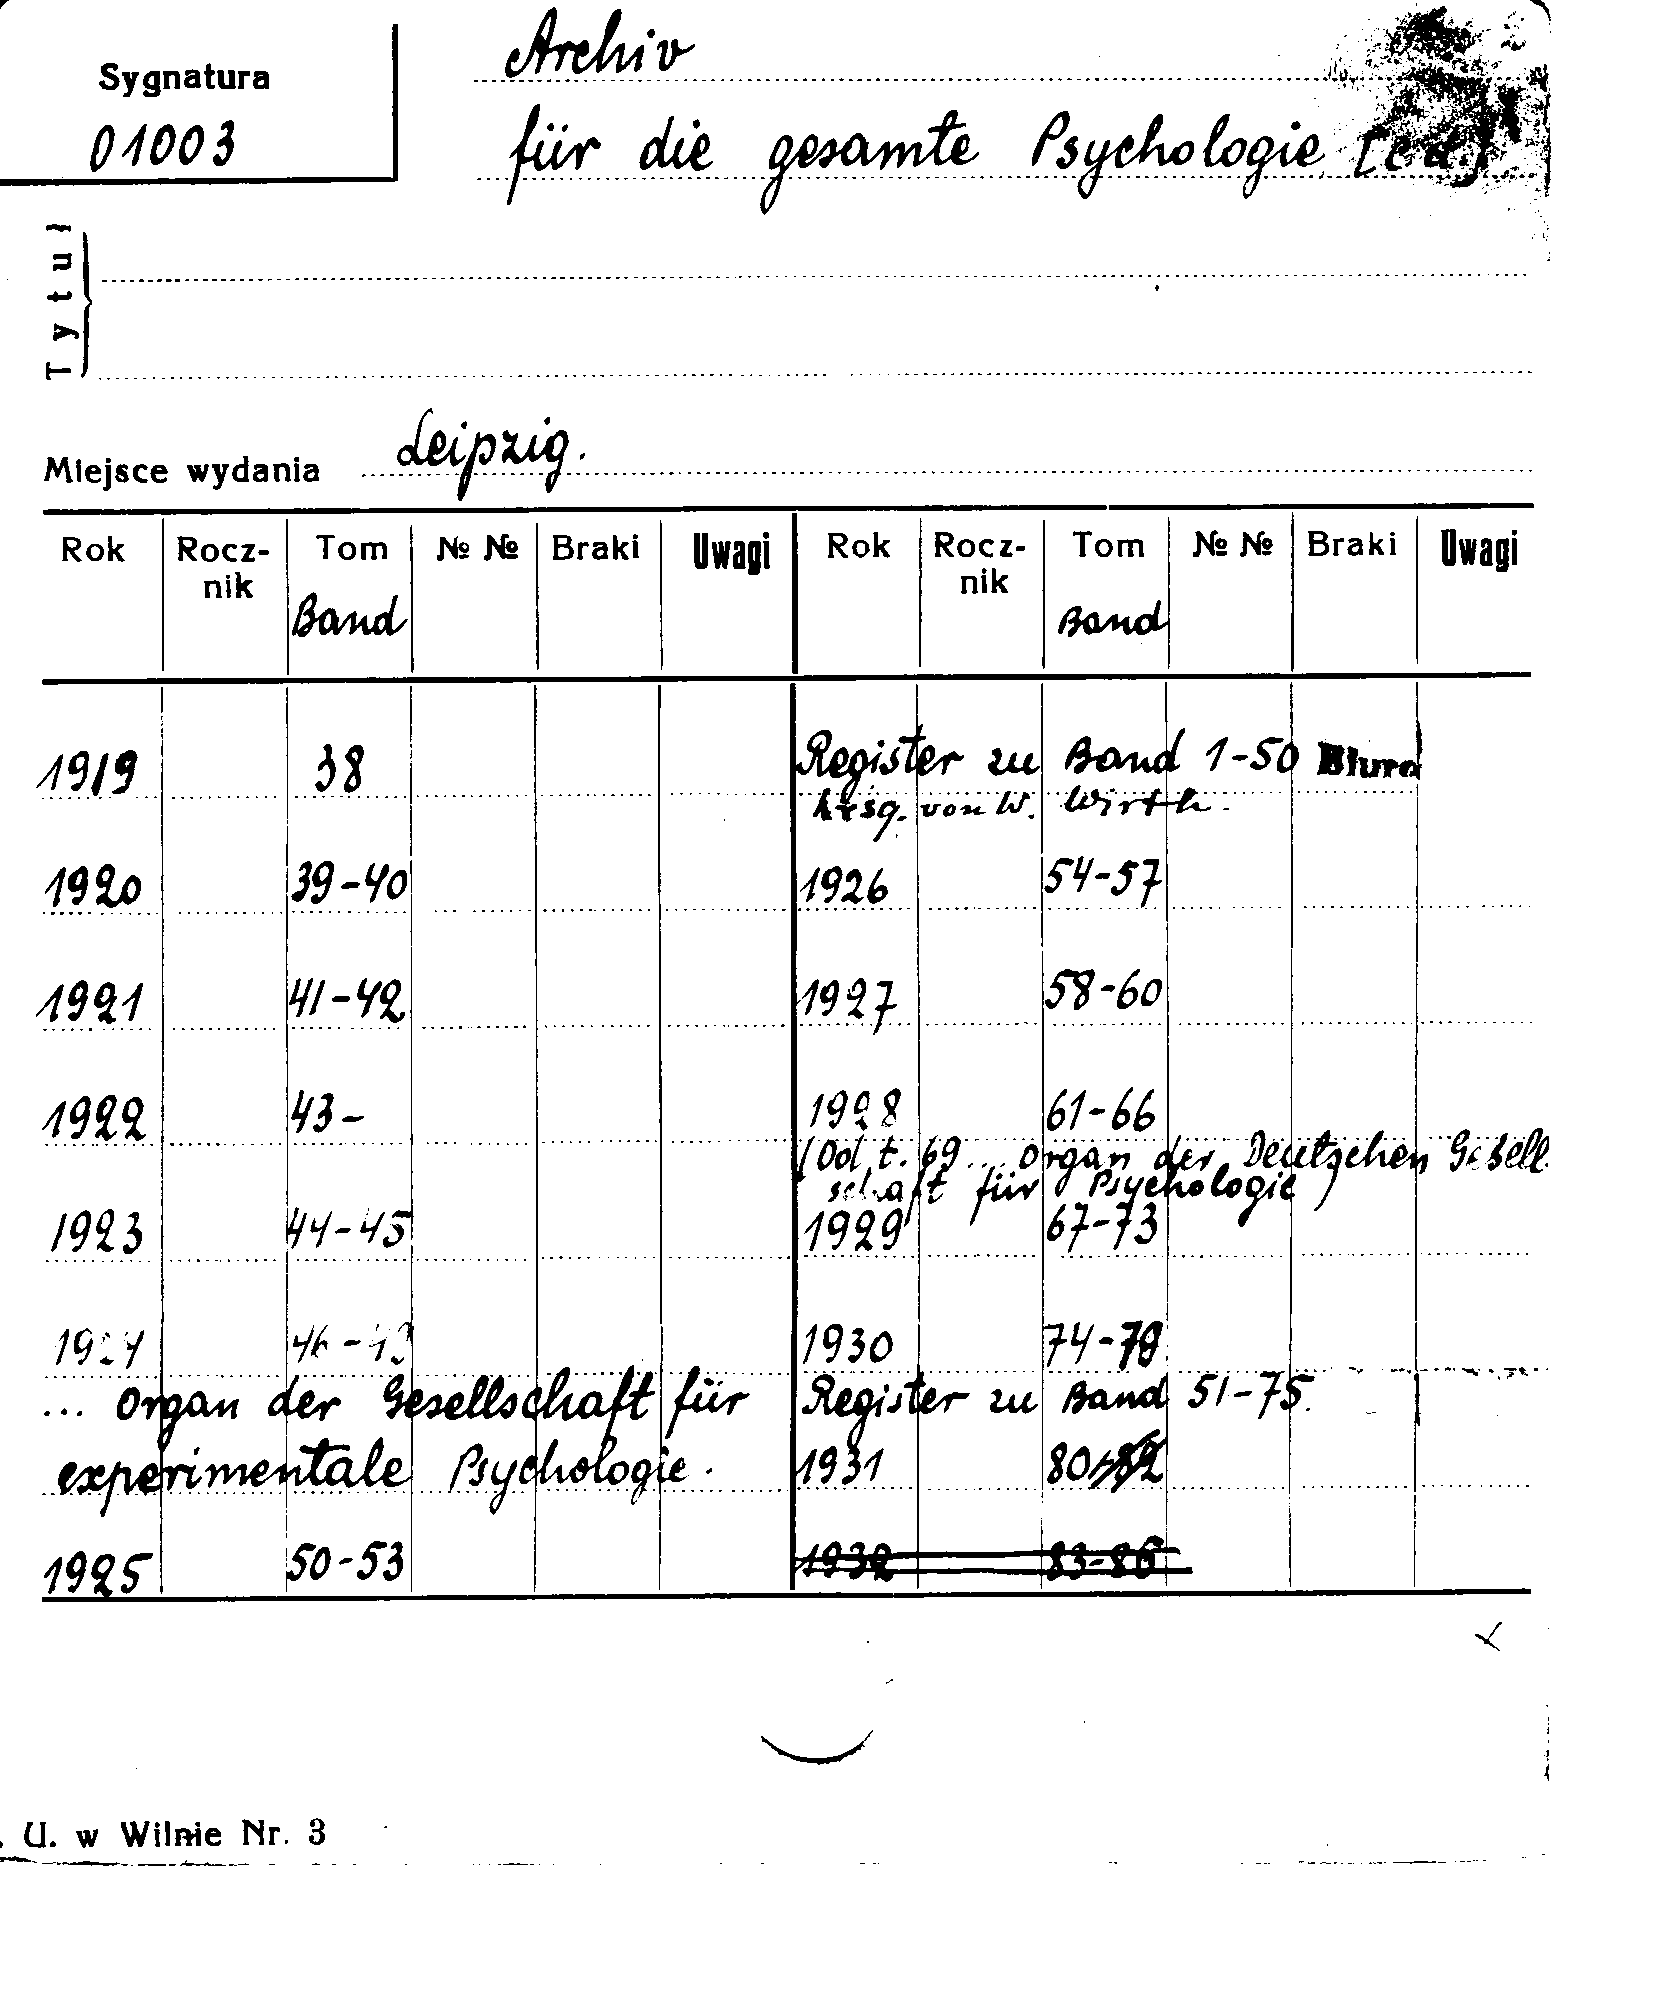 Sygnatura
01003
Archiv
für die gesamte Psychologie [c.d.]
Tytuł
Miejsce wydania Leipzig.
Rok Rocz-nik Tom № № Braki Uwagi Rok Rocz-nik Tom № № Braki Uwagi
Band Band
1919 38 Register zu Band 1-50 Biuro
hrsg. von W. Wirth.
1920 39-40 1926 54-57
1921 41-42 1927 58-60
1922 43- 1928 61-66
(Od t. 69... Organ der Deutschen Gesell
schaft für Psychologie)
1923 44-45 1929 67-73
1924 46-49 1930 74-78
... Organ der Gesellschaft für Register zu Band 51-75.
experimentale Psychologie. 1931 80
1925 50-53 1932 83-86
. U. w Wilnie Nr. 3